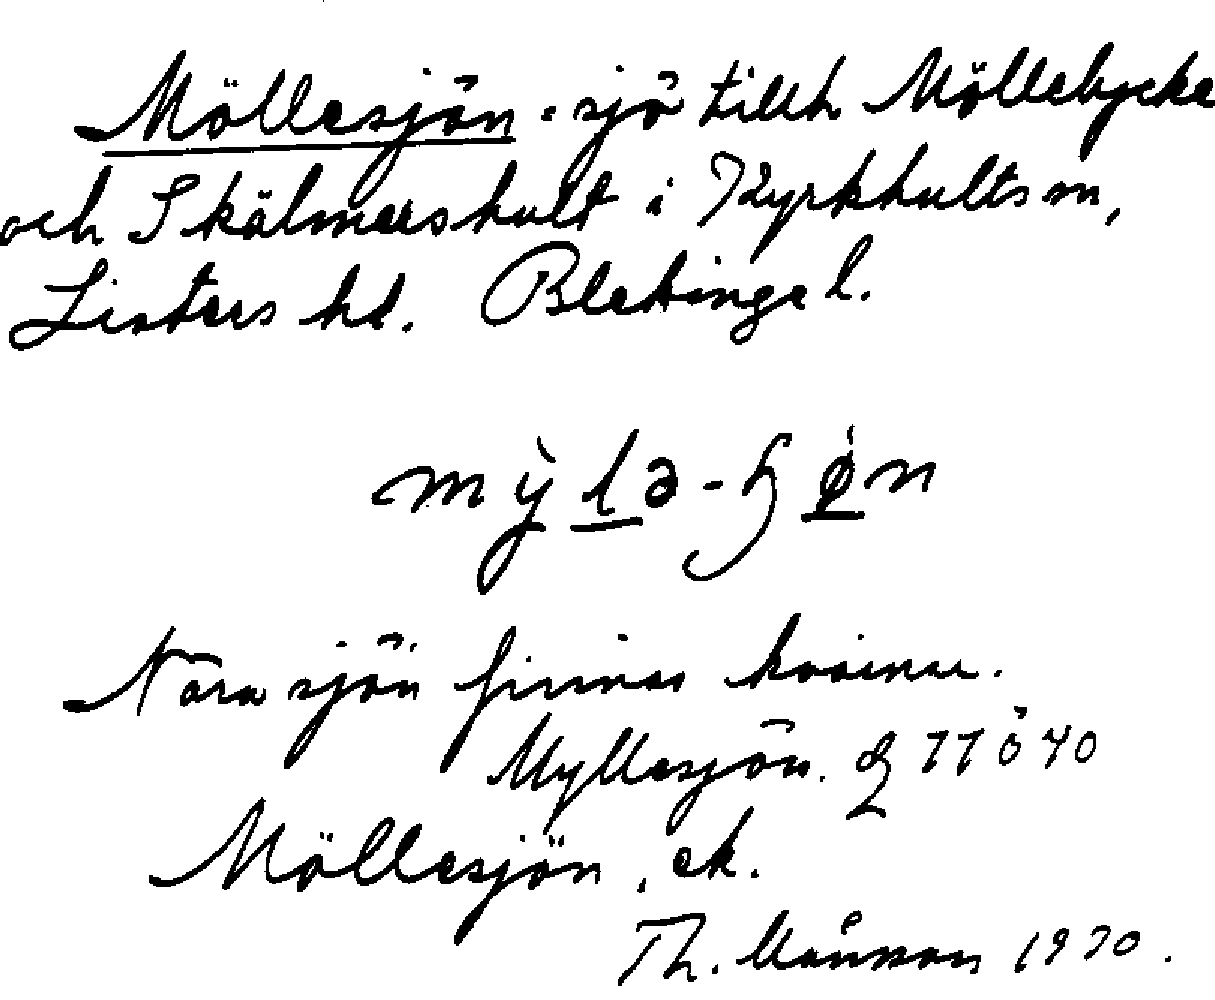 Möllesjön - sjö tillh Möllebycke
och Skälmershult i Kyrkhults sn,
Listers hd. Blekinge l.
mỳlə-ɧøn
Nära sjön finnes kvarnar.
Myllesjön. 77 ö 40
Möllesjön, ek.
Th. Månsson 1970.